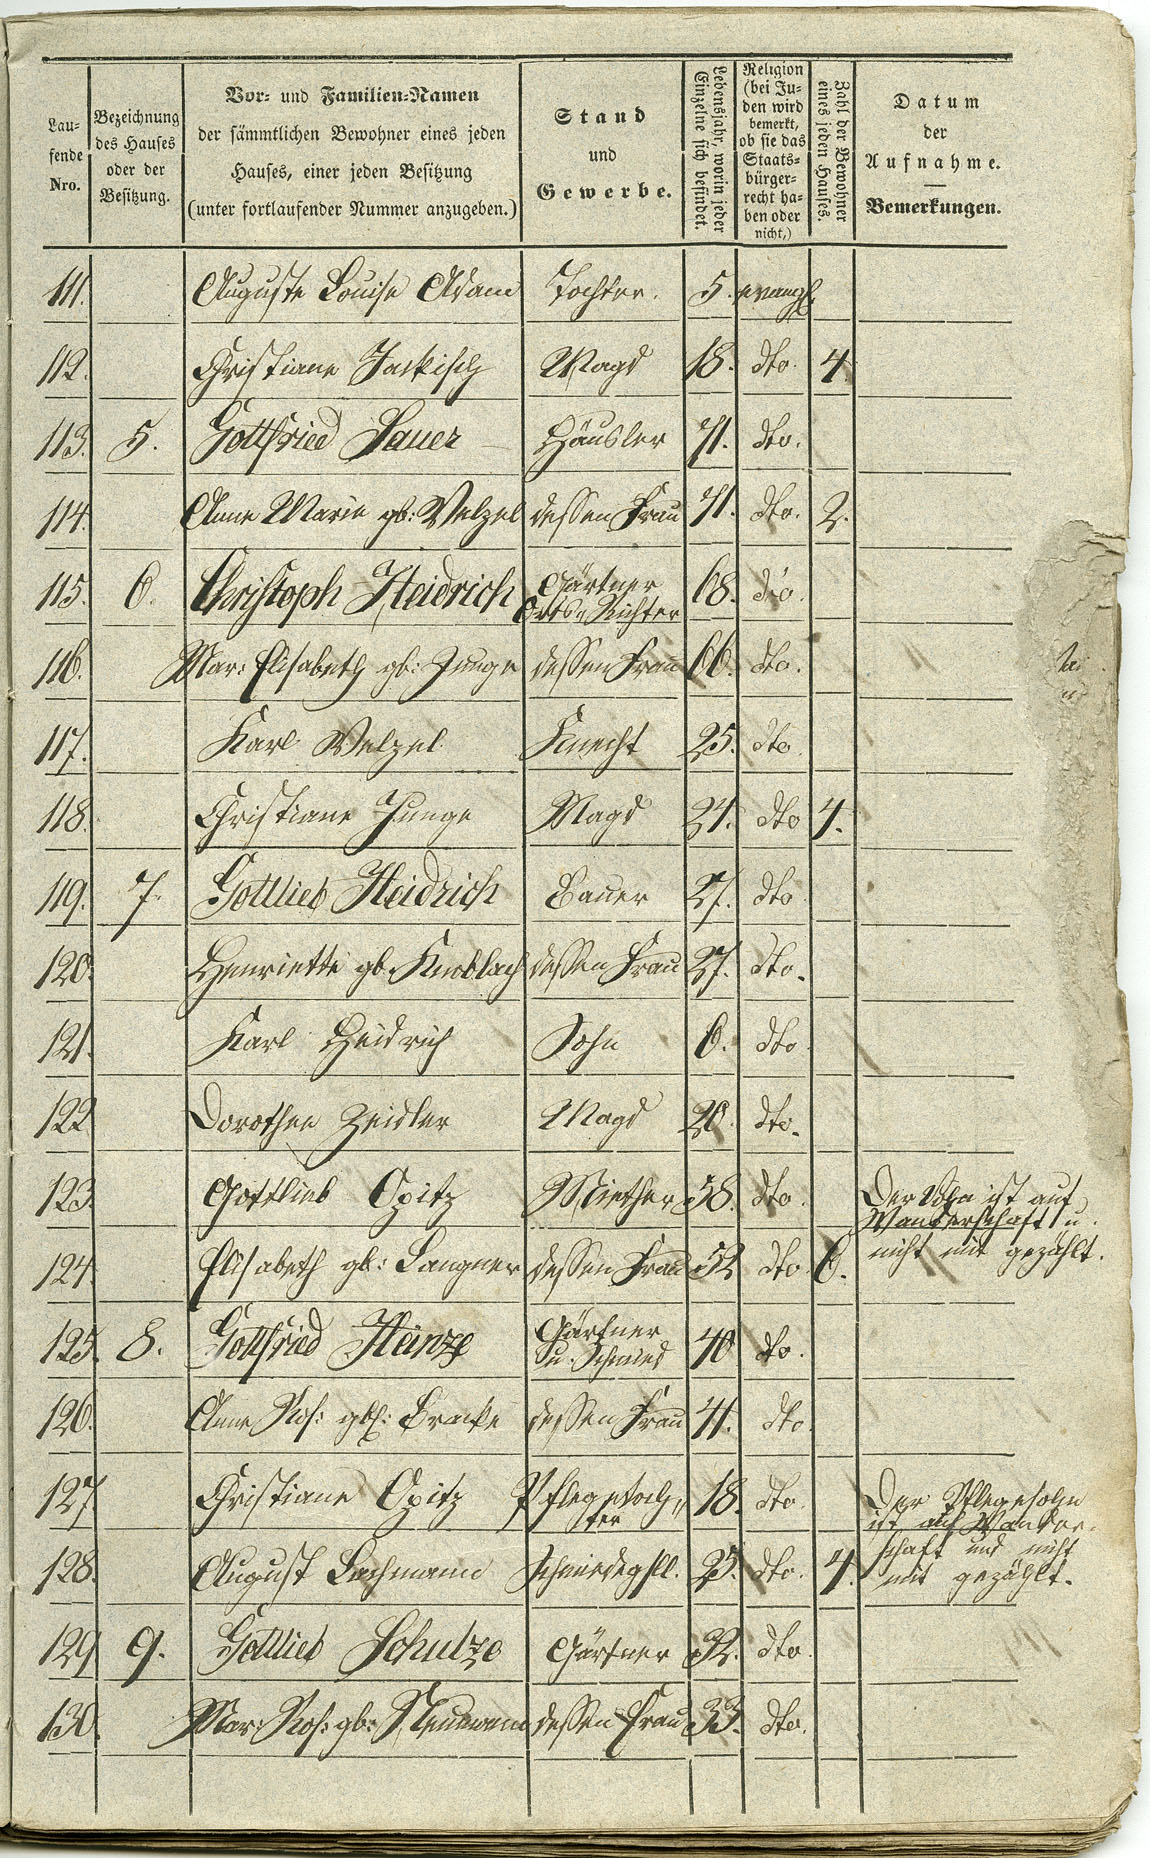 Lau-
fende
Nro.
Bezeichnung
des Hauses
oder der
Besitzung.
Vor- und Familien-Namen
der sämmtlichen Bewohner eines jeden
Hauses, einer jeden Besitzung
(unter fortlaufender Nummer anzugeben.)
Stand
und
Gewerbe.
Lebensjahr, worin jeder
Einzelne sich befindet.
Religion
(bei Ju-
den wird
bemerkt,
ob sie das
Staats-
bürger-
recht ha-
ben oder
nicht,)
Zahl der Bewohner
eines jeden Hauses.
Datum
der
Aufnahme.
Bemerkungen.
111. Auguste Louise Adam Tochter. 5. evangl.
112. Christiane Jackisch Magd 18. dto. 4.
113. 5. Gottfried Sauer Häusler 71. dto.
114. Anne Marie gb: Welzel dessen Frau 71. dto. 2.
115. 6. Christoph Heidrich Gärtner
Orts-Richter 68. dto.
116. Mar: Elisabeth gb: Junge dessen Frau 66. dto.
117. Karl Welzel Knecht 25. dto
118. Christiane Junge Magd 24. dto 4.
119. 7. Gottlieb Heidrich Bauer 27. dto
120. Henriette gb. Knoblach dessen Frau 27. dto.
121. Karl Heidrich Sohn 6. dto
122 Dorothea Zeidler Magd 20. dto.
123. Gottlieb Opitz Miether 58. dto. Der Sohn ist auf
Wanderschaft u.
nicht mit gezählt.
124 Elisabeth gb: Langner dessen Frau 52 dto 6.
125. 8. Gottfried Heinze Gärtner
u. Schmied 40 dto.
126. Anne Ros: dessen Frau 41. dto.
127 Christiane Opitz Pflegetoch-
ter 18. dto. Der Pflegesohn
ist auf Wander-
schaft und nicht
mit gezählt.
128. August Lachmann Schmiedegsll. 25. dto. 4.
129 9. Gottlieb Schulze Gärtner 32. dto.
130. Mar: Ros: gb: Neumann dessen Frau 33. dto.